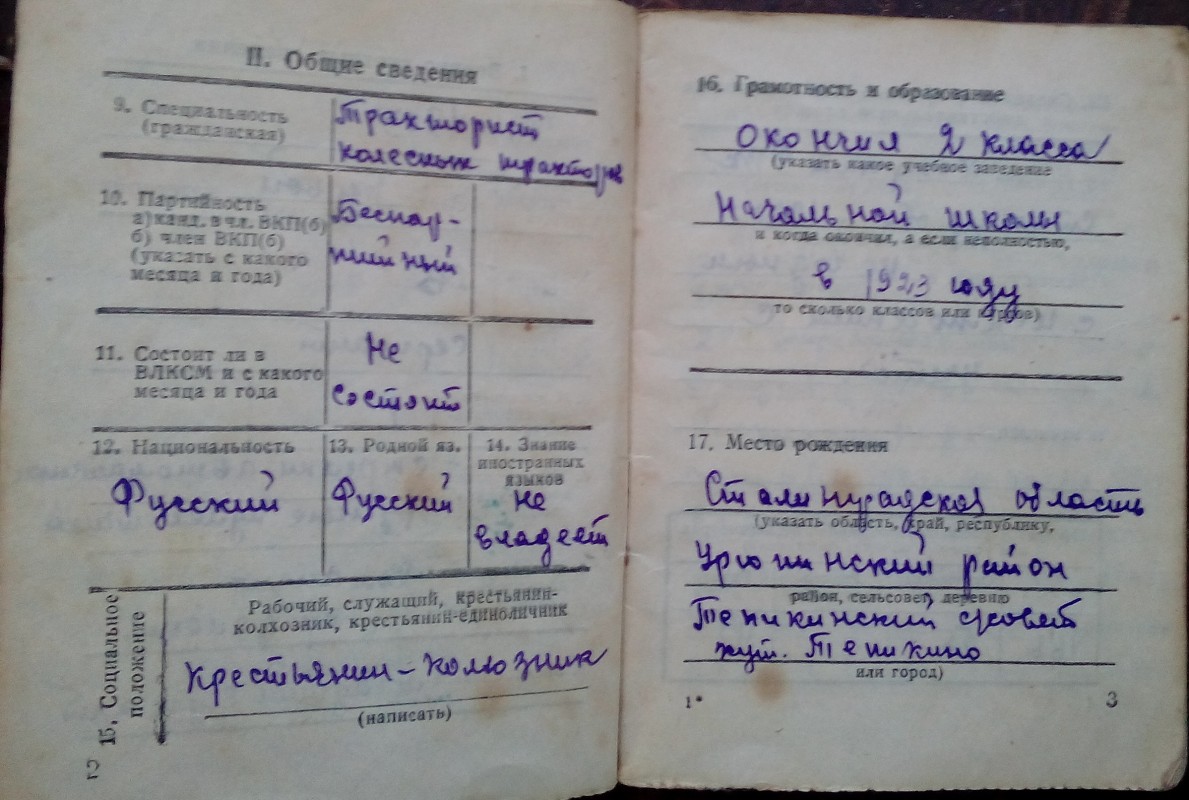 II. Общие сведения
9. Специальность
(гражданская)
Тракторист
колесных тракторов
10. Партийность
а) канд. в чл. ВКП(б)
б) член ВКП(б)
(указать с какого
месяца и года)
Беспар-
тийный
11. Состоит ли в
ВЛКСМ и с какого
месяца и года
Не
состоит
12. Национальность
Русский
13. Родной яз.
Русский
14. Знание
иностранных
языков
Не
владеет
15. Социальное
положение
Рабочий, служащий, крестьянин-
колхозник, крестьянин-единоличник
Крестьянин-колхозник
(написать)
2
16. Грамотность и образование
окончил 2 класса
(указать какое учебное заведение
Начальной школы
и когда окончил, а если неполностью,
в 1923 году
то сколько классов или курсов)
17. Место рождения
Сталинградская область
(указать область, край, республику,
Урюпинский район
район, сельсовет, деревню
Тепикинский с/совет
хут. Тепикино
или город)
1*
3